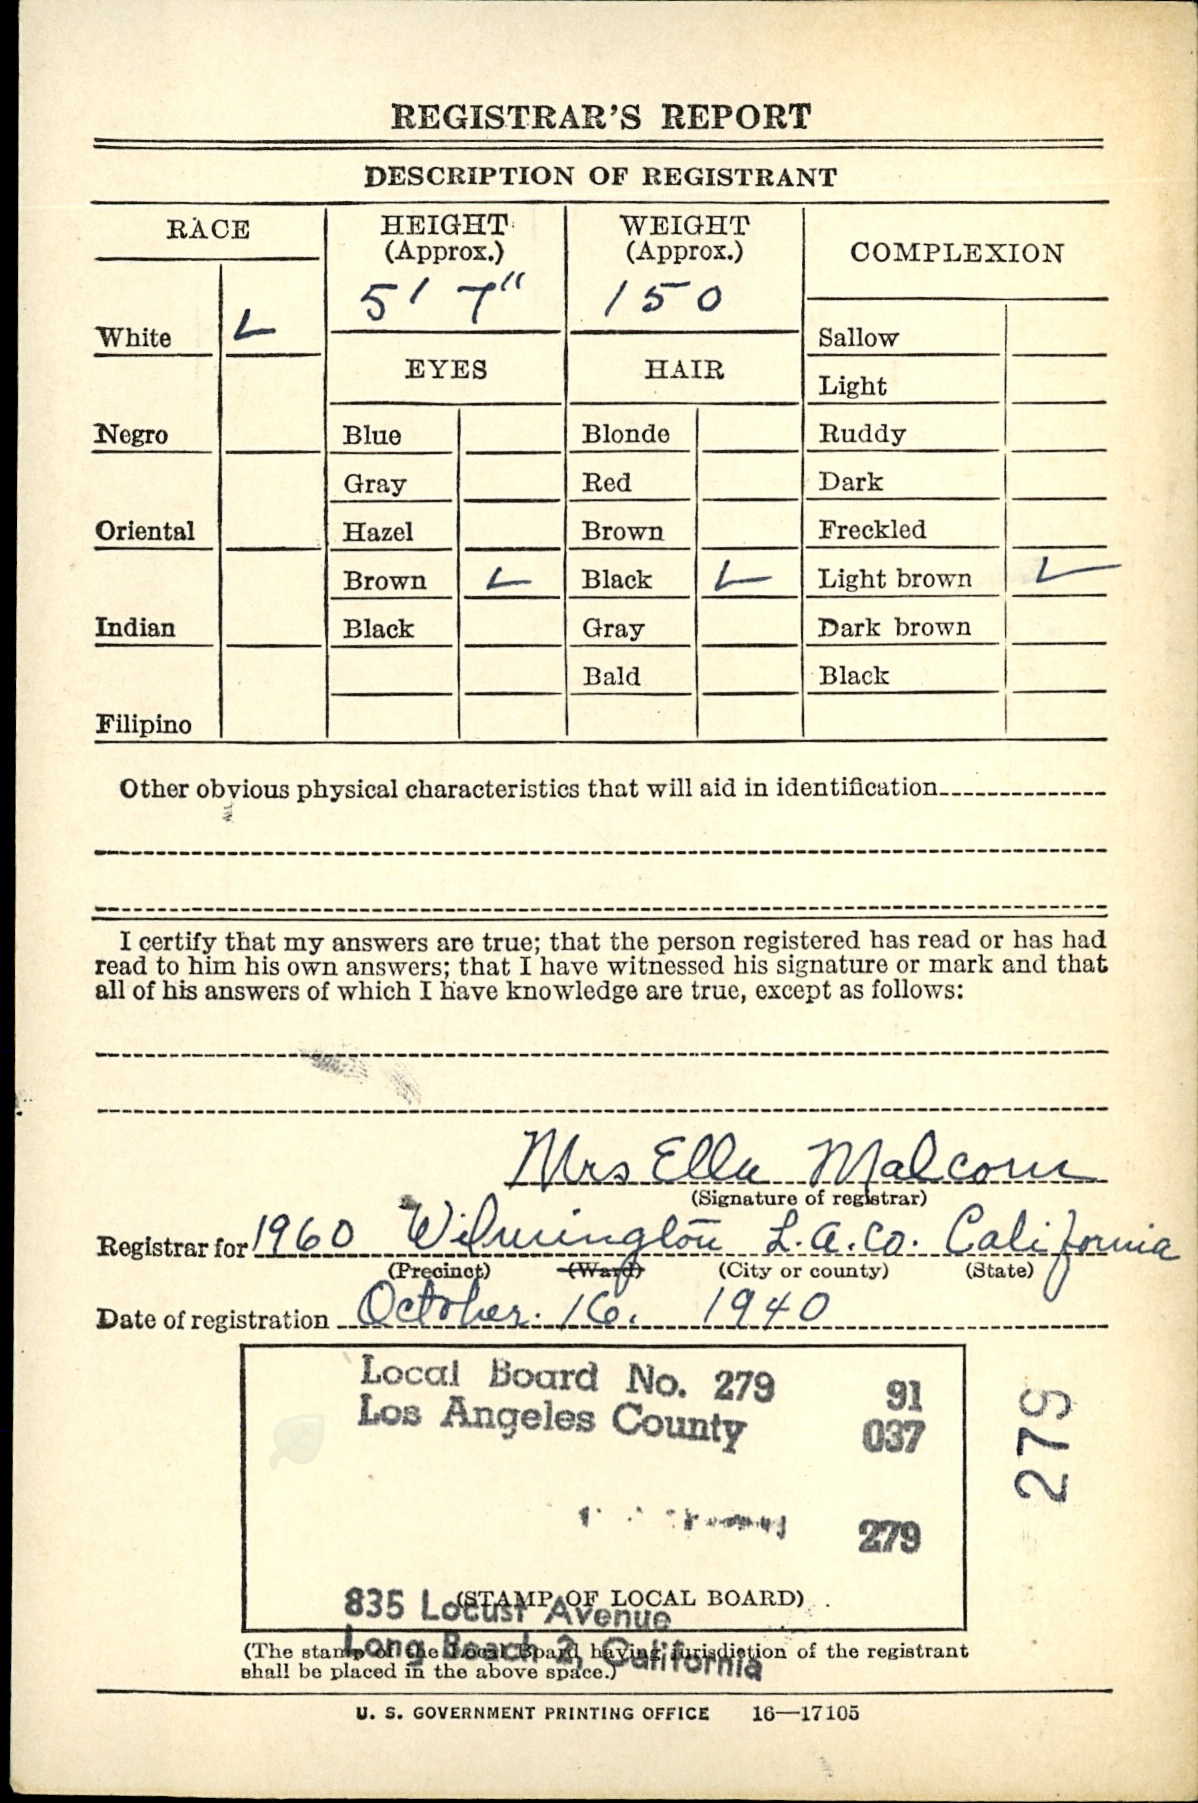 REGISTRAR'S REPORT
DESCRIPTION OF REGISTRANT
RACE
HEIGHT
(Approx.)
WEIGHT
(Approx.)
COMPLEXION
5' 7"
150
White
EYES
HAIR
Sallow
Light
Negro
Blue
Blonde
Ruddy
Gray
Red
Dark
Oriental
Hazel
Brown
Freckled
Brown
Black
Light brown
Indian
Black
Gray
Dark brown
Bald
Black
Filipino
Other obvious physical characteristics that will aid in identification
I certify that my answers are true; that the person registered has read or has had
read to him his own answers; that I have witnessed his signature or mark and that
all of his answers of which I have knowledge are true, except as follows:
Mrs Ella Malcom
(Signature of registrar)
Registrar for 1960 Wilmington L.A. Co. California
(Precinct) (Ward) (City or county) (State)
Date of registration October. 16. 1940
Local Board No. 279 91
Los Angeles County 037
279
279
(STAMP OF LOCAL BOARD)
835 Locust Avenue
Long Beach 2, California
(The stamp of the Local Board having jurisdiction of the registrant
shall be placed in the above space.)
U. S. GOVERNMENT PRINTING OFFICE 16—17105